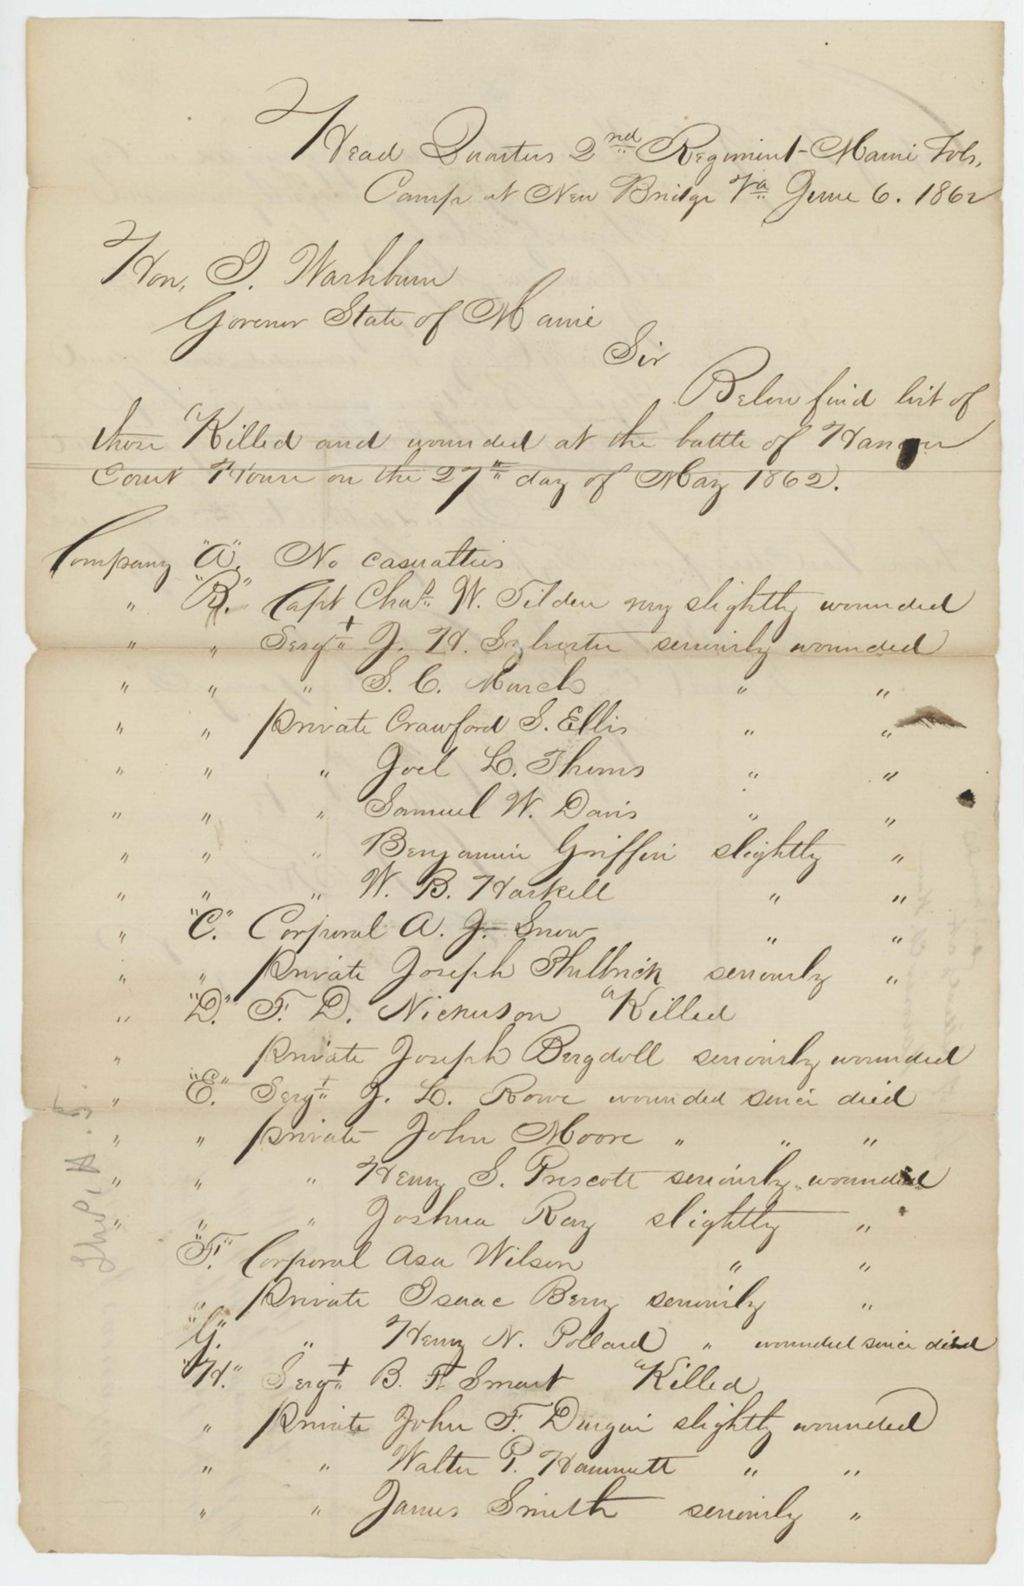 Head Quarters 2nd Regiment Maine Vols.
Camp at New Bridge Va June 6. 1862
Hon. I. Washburn
Govenor State of Maine
Sir
Below find list of
those Killed and wounded at the battle of Hanover
Court House on the 27th day of May 1862.
Company "A". No casualties
" "B." Capt Chas. W. Tilden very slightly wounded
" " Sergt J. H. Sylvester seriously wounded
" " " S. C. March " "
" " private Crawford S. Ellis " "
" " " Joel L. Thoms " "
" " " Samuel W. Davis " "
" " " Benjamin Griffin slightly "
" " " W. B. Haskell " "
" "C." Corporal A. J. Snow " "
" " private Joseph Philbrick seriously "
" "D." F. D. Nickerson Killed
" private Joseph Bergdoll seriously wounded
" "E." Sergt J. L. Rowe wounded since died
" " private John Moore " " "
" " " Henry S. Prescott seriously wounded
" " " Joshua Ray slightly "
"F." Corporal Asa Wilson " "
" private Isaac Berry seriously "
"G" " Henry N. Pollard " wounded since died
"H." Sergt B. F. Smart Killed
" private John F. Durgin slightly wounded
" " Walter P. Hammett " "
" " James Smith seriously "